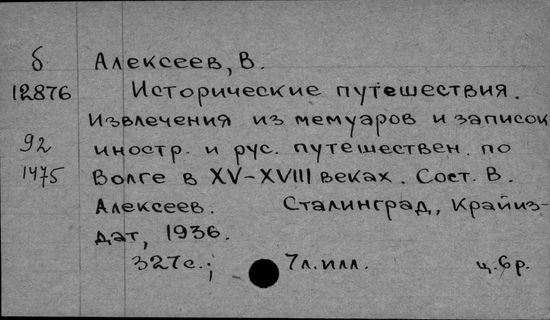 б Алексеев, В.
12876 Исторические путешествия.
Извлечения из мемуаров и записок
92 иностр. и рус. путешествен. по
1475 Волге в XV-XVIII веках. Сост. В.
Алексеев. Сталинград, Крайиз-
дат, 1936.
327с.; 7л.илл. ц.6р.